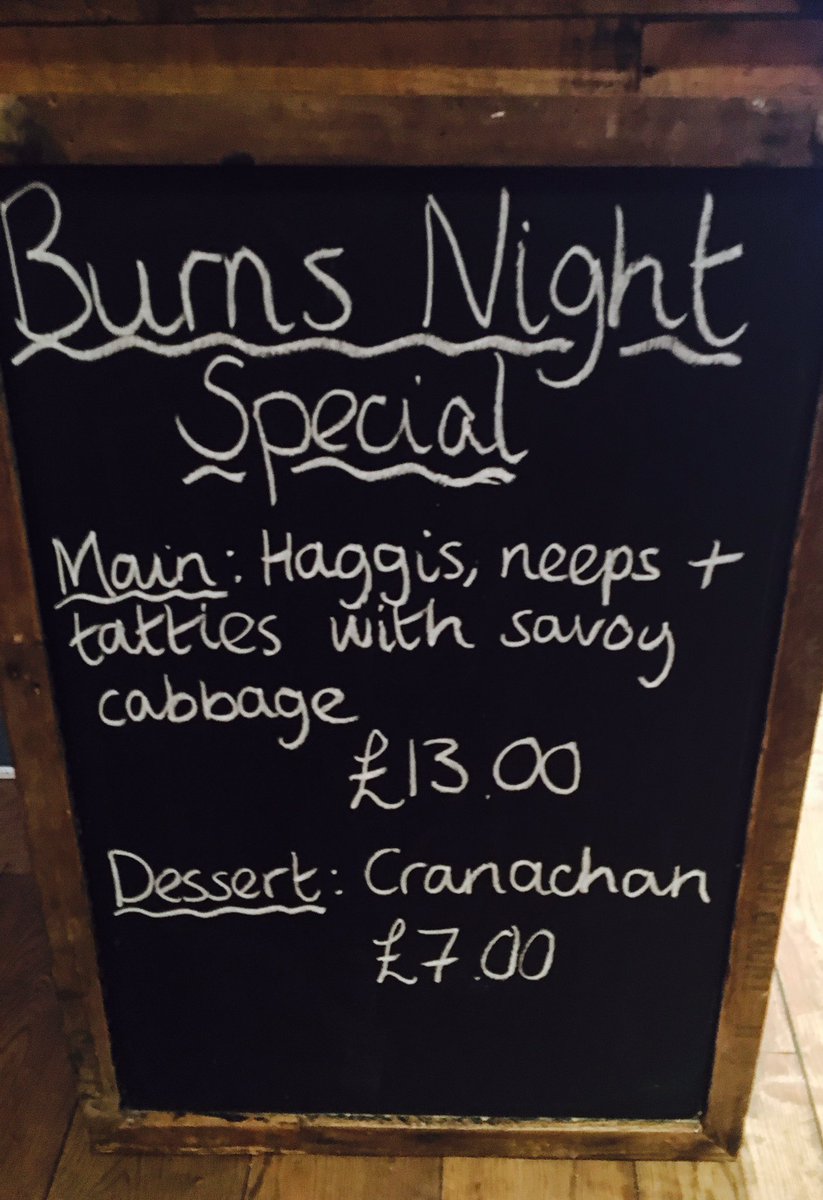 Burns Night
Special
Main: Haggis, neeps +
tatties with savoy
cabbage
£13.00
Dessert: Cranachan
£7.00